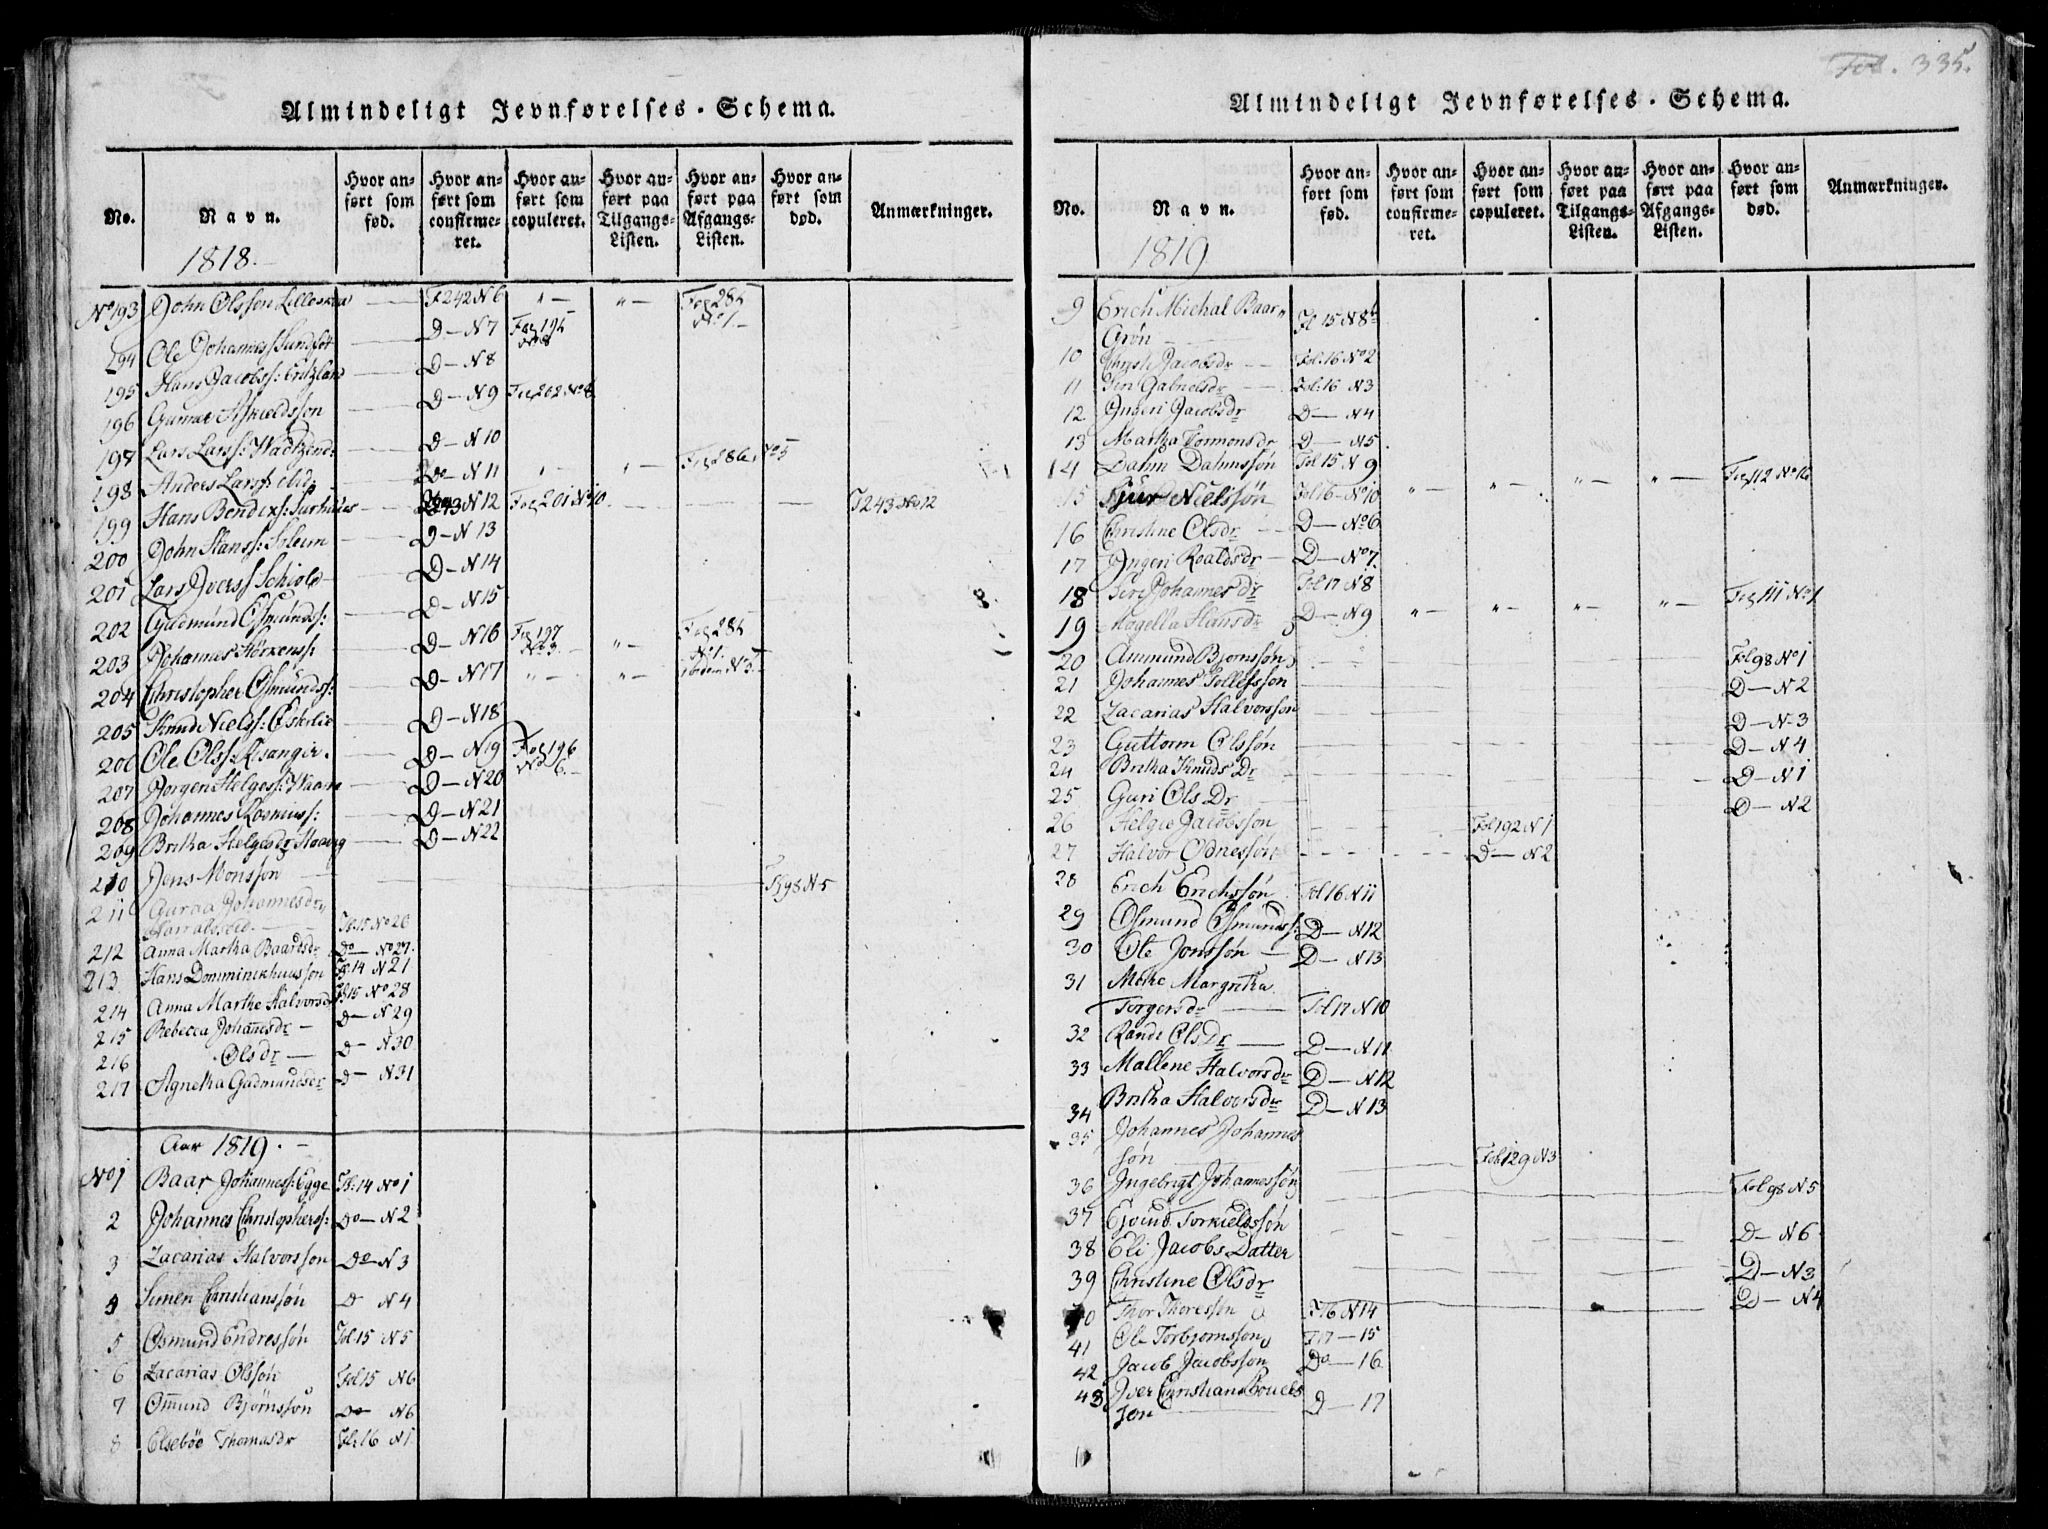 Almindeligt Jevnførelses-Schema.
No. | Navn. | Hvor anført som fød. | Hvor anført som confirmeret. | Hvor anført som copuleret. | Hvor anført paa Tilgangs-Listen. | Hvor anført paa Afgangs-Listen. | Hvor anført som død. | Anmærkninger.
1818.
No 193 John Olsson F 242 N 6 " — " — Fog 285 No 1
194 Ole Johanness: D — N 7 Fog 195 No 8
195 Hans Jacobs: D — N 8
196 Gunnar D — N 9 Fog 202 No 8
197 Lars Larss: D — N 10
198 Anders Larss: ibid: Do — N 11 " — " — Fog 286, No 5
199 Hans Bendixs: N 12 Fog 201 No 10 F 243 No 12
200 John Hanss: D — N 13
201 Lars Ivers: D — N 14
202 Gudmund Osmunds: D — N 15
203 Johannes D — N 16 Fog 197 No 3. " — Fog 285 No 1.
204 Christopher Osmunds: D — N 17 " — " — ibidem N 5
205 Knud Niels: D — N 18
206 Ole Olss: D — N 19 Fog 196 No 6.
207 Jørgen Helges: D — N 20
208 Johannes D — N 21
209 Britha Helgesdr D — N 22
210 Jens Monsson F 98 N 5
211 Guroa Johannesdr
Fl 15 No 26
212 Anna Martha Baardsdr Do — No 27.
213 Hans Fl 14 N 21
214 Anna Marthe Halvorsdr Fl 15 No 28
215 Rebecca Johanesdr — D — N 29
216 Olsdr — D — N 30
217 Agnetha Gudmundsdr D — N 31
Aar 1819. —
No 1 Baar Johanness: Egge Fl: 14 No 1
2 Johannes Christophers: Do — N 2
3 Zacarias Halvorsson Do — N 3
4 Simen Christianssøn D N 4
5 Osmund Endressøn Fol 15 N 5
6 Zacarias Olssøn Fol 15 N 6
7 Omund Bjørnssøn Do N 6
8 Elsebøe Thomasdr Fl: 16 N 1
Fol. 335.
Almindeligt Jevnførelses-Schema.
No. | Navn. | Hvor anført som fød. | Hvor anført som confirmeret. | Hvor anført som copuleret. | Hvor anført paa Tilgangs-Listen. | Hvor anført paa Afgangs-Listen. | Hvor anført som død. | Anmærkninger.
1819
9 Erich Michal Baar
Grøn — Fl 15 N 8
10 Jacobsdr — Fol: 16 No 2
11 Gabrielsdr — Fol: 16 N 3
12 Ingeri Jacobsdr D — N 4
13 Martha Tormonsdr D — N 5
14 Dahm Dahmssøn Fol 15 N 9
15 Sjur Nielssøn Fol 16 — No 10 " — " — " — " — Fog 112 No 16
16 Christine Olsdr — D — No 6
17 Ingeri Roaldsdr — D — No 7
18 Siri Johannesdr Fol 17 N 8
19 Magella Hansdr D — N 9 " — " — " — " — Fog 111 No 1
20 Ammund Bjørnssøn Fol 98 No 1
21 Johannes Tollefsson D — N 2
22 Zacarias Halvorsson D — N 3
23 Guttorm Olssøn D — N 4
24 Britha KnudsDr D — N 1
25 Guri OlsDr D — N 2
26 Helgie Jacobsson Fol 192 N 1
27 Halvor Odnessøn D — N 2
28 Erich Erichssøn Fol 16 N 11
29 Osmund Osmunds: D — N 12
30 Ole Jonssøn — D — N 13
31 Margretha
Torgersdr — Fol 17 N 10
32 Rande OlsDr — D — N 11
33 Mallene Halvorsdr D — N 12
34 Britha Halvorsdr D — N 13
35 Johannes Johannes
søn Fol: 129 N 3
36 Ingebrigt Johannessøn Fol 98 N 5
37 Ejvind Torkieldssøn D — N 6
38 Eli Jacobs Datter D — N 3
39 Christine Olsdr D — N 4
40 Thor Thoressøn F 16 N 14
41 Ole Torbjørnssøn F 17 — 15
42 Jacob Jacobsson Do — 16
43 Iver Christian
søn D — 17